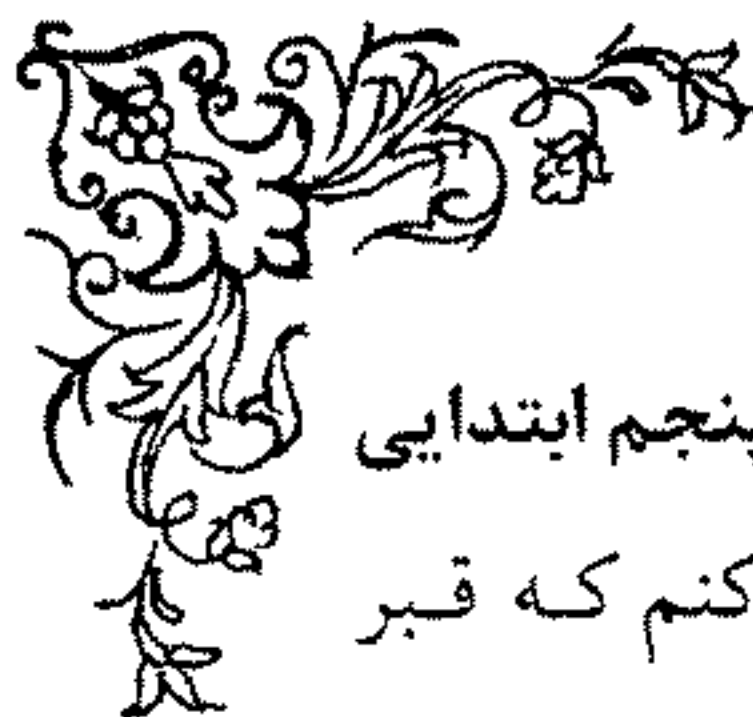 پنجم ابتدایی
کنم که قبر